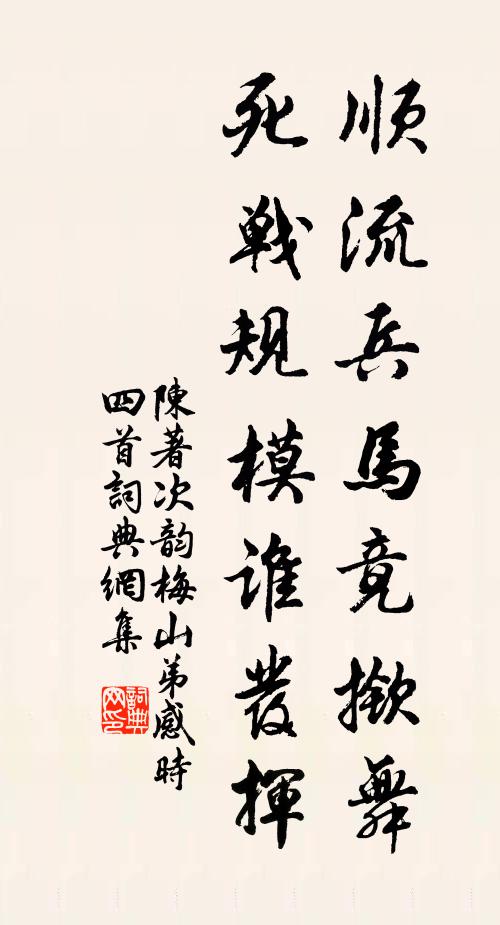 順流兵馬竟掀舞
死戰規模誰發揮
陳著次韵梅山弟感時
四首詞典網集
詞典网印